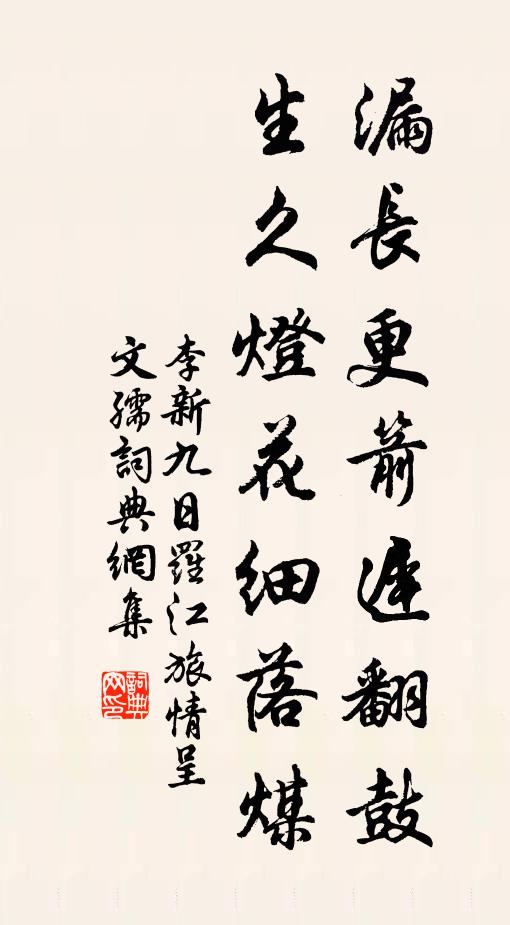 漏長更箭遲翻鼓
生久燈花細落煤
李新九日羅江旅情呈
文孺詞典網集
詞典網印